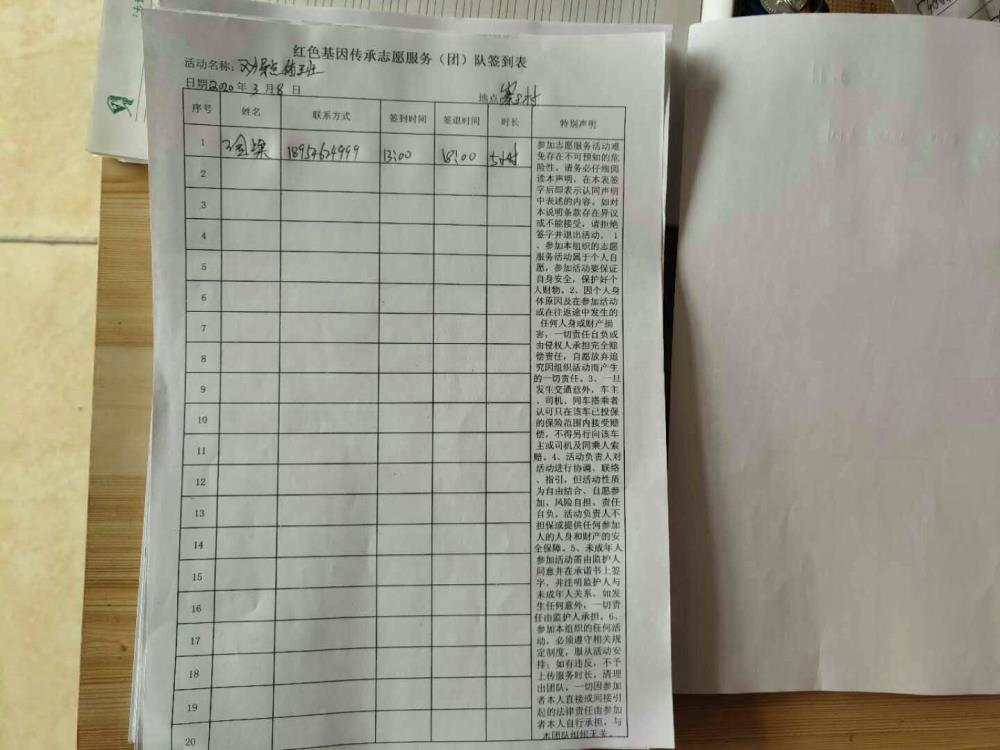 红色基因传承志愿服务（团）队签到表
活动名称：
日期2020年3月8日
地点
序号 姓名 联系方式 签到时间 签退时间 时长 特别声明
1 13:00 18:00
2
3
4
5
6
7
8
9
10
11
12
13
14
15
16
17
18
19
20
参加志愿服务活动难
免存在不可预知的危
险性。请务必仔细阅
读本声明，在本表签
字后即表示认同声明
中表述的内容。如对
本说明条款存在异议
或不能接受，请拒绝
签字并退出活动。1
、参加本组织的志愿
服务活动属于个人自
愿，参加活动要保证
自身安全，保护好个
人财物。2、因个人身
体原因及在参加活动
或在往返途中发生的
任何人身或财产损
害，一切责任自负或
由侵权人承担完全赔
偿责任，自愿放弃追
究因组织活动而产生
的一切责任。3、一旦
发生交通意外，车主
、司机、同车搭乘者
认可只在该车已投保
的保险范围内接受赔
偿，不得另行向该车
主或司机及同乘人索
赔。4、活动负责人对
活动进行协调、联络
、指引，但活动性质
为自由结合、自愿参
加、风险自担、责任
自负。活动负责人不
担保或提供任何参加
人的人身和财产的安
全保障。5、未成年人
参加活动需由监护人
同意并在承诺书上签
字，并注明监护人与
未成年人关系，如发
生任何意外，一切责
任由监护人承担。6、
参加本组织的任何活
动，必须遵守相关规
定制度，服从活动安
排；如有违反，不予
上传服务时长，清理
出团队。一切因参加
者本人直接或间接引
起的法律责任由参加
者本人自行承担，与
本团队组织无关。